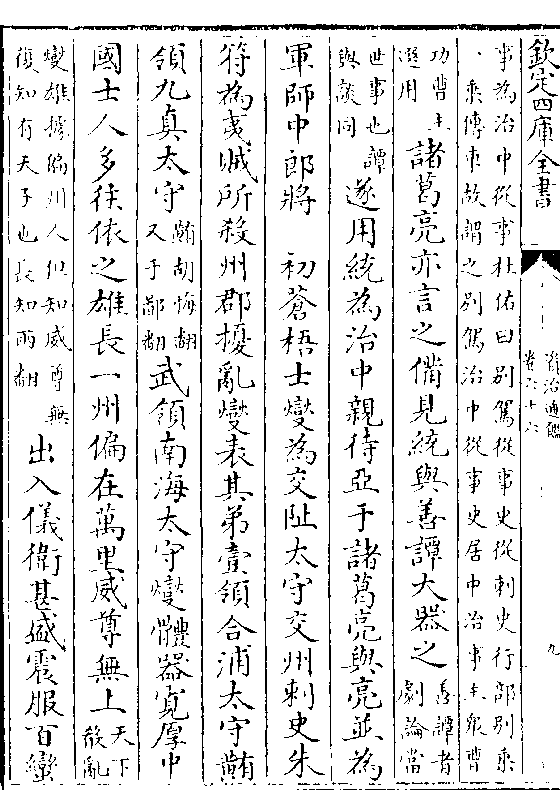 欽定四庫全書
資治通鑑
卷六十六
九
事為治中從事杜佑曰别駕從事史從刺史行部别乗
一乗傳車故謂之别駕治中從事史居中治事主衆曹
功曹主
選用
諸葛亮亦言之備見統與善譚大器之
善譚者
劇論當
世事也譚
與談同
遂用統為治中親待亞于諸葛亮與亮並為
軍師中郎將　初蒼梧士燮為交阯太守交州刺史朱
符為夷賊所殺州郡擾亂燮表其弟壹領合浦太守䵋
領九真太守
䵋胡悔翻
又于鄙翻
武領南海太守燮體器寛厚中
國士人多徃依之雄長一州偏在萬里威尊無上
天下
殽亂
燮雄據偏州人但知威尊無
復知有天子也長知兩翻
出入儀衛甚盛震服百蠻